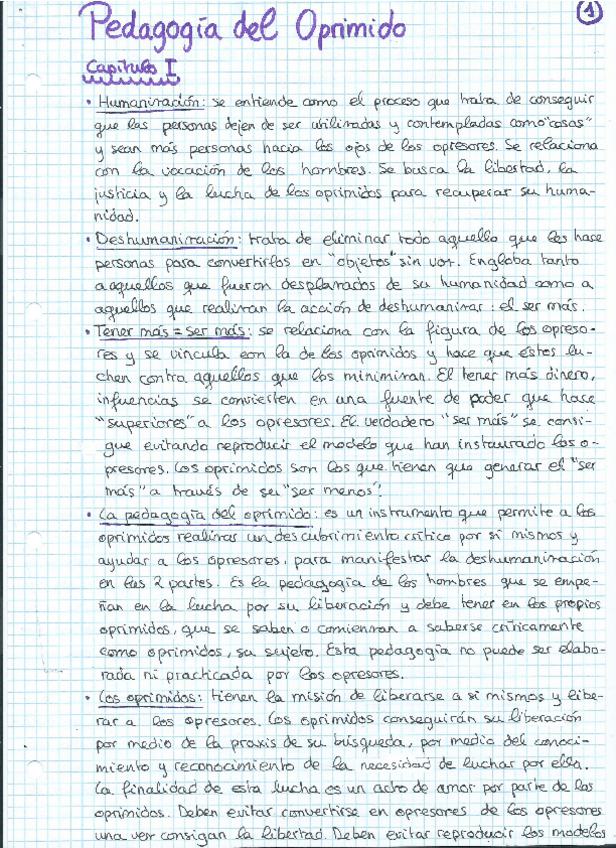 Pedagogía del Oprimido
1
Capítulo I
• Humanización: se entiende como el proceso que trata de conseguir
que las personas dejen de ser utilizadas y contempladas como "cosas"
y sean más personas hacia los ojos de los opresores. Se relaciona
con la vocación de los hombres. Se busca la libertad, la
justicia y la lucha de los oprimidos para recuperar su huma-
nidad.
• Deshumanización: trata de eliminar todo aquello que les hace
personas para convertirlos en "objetos" sin voz. Engloba tanto
a aquellos que fueron desplazados de su humanidad como a
aquellos que realizan la acción de deshumanizar: el ser más.
• Tener más = ser más: se relaciona con la figura de los opreso-
res y se vincula con la de los oprimidos y hace que éstos lu-
chen contra aquellos que los minimizan. El tener más dinero,
influencias se convierten en una fuente de poder que hace
"superiores" a los opresores. El verdadero "ser más" se consi-
gue evitando reproducir el modelo que han instaurado los o-
presores. Los oprimidos son los que tienen que generar el "ser
más" a través de su "ser menos".
• La pedagogía del oprimido: es un instrumento que permite a los
oprimidos realizar un descubrimiento crítico por sí mismos y
ayudar a los opresores, para manifestar la deshumanización
en las 2 partes. Es la pedagogía de los hombres que se empe-
ñan en la lucha por su liberación y debe tener en los propios
oprimidos, que se saben o comienzan a saberse críticamente
como oprimidos, su sujeto. Esta pedagogía no puede ser elabo-
rada ni practicada por los opresores.
• Los oprimidos: tienen la misión de liberarse a si mismos y libe-
rar a los opresores. Los oprimidos conseguirán su liberación
por medio de la praxis de su búsqueda, por medio del conoci-
miento y reconocimiento de la necesidad de luchar por ella.
La finalidad de esta lucha es un acto de amor por parte de los
oprimidos. Deben evitar convertirse en opresores de los opresores
una vez consigan la libertad. Deben evitar reproducir los modelos